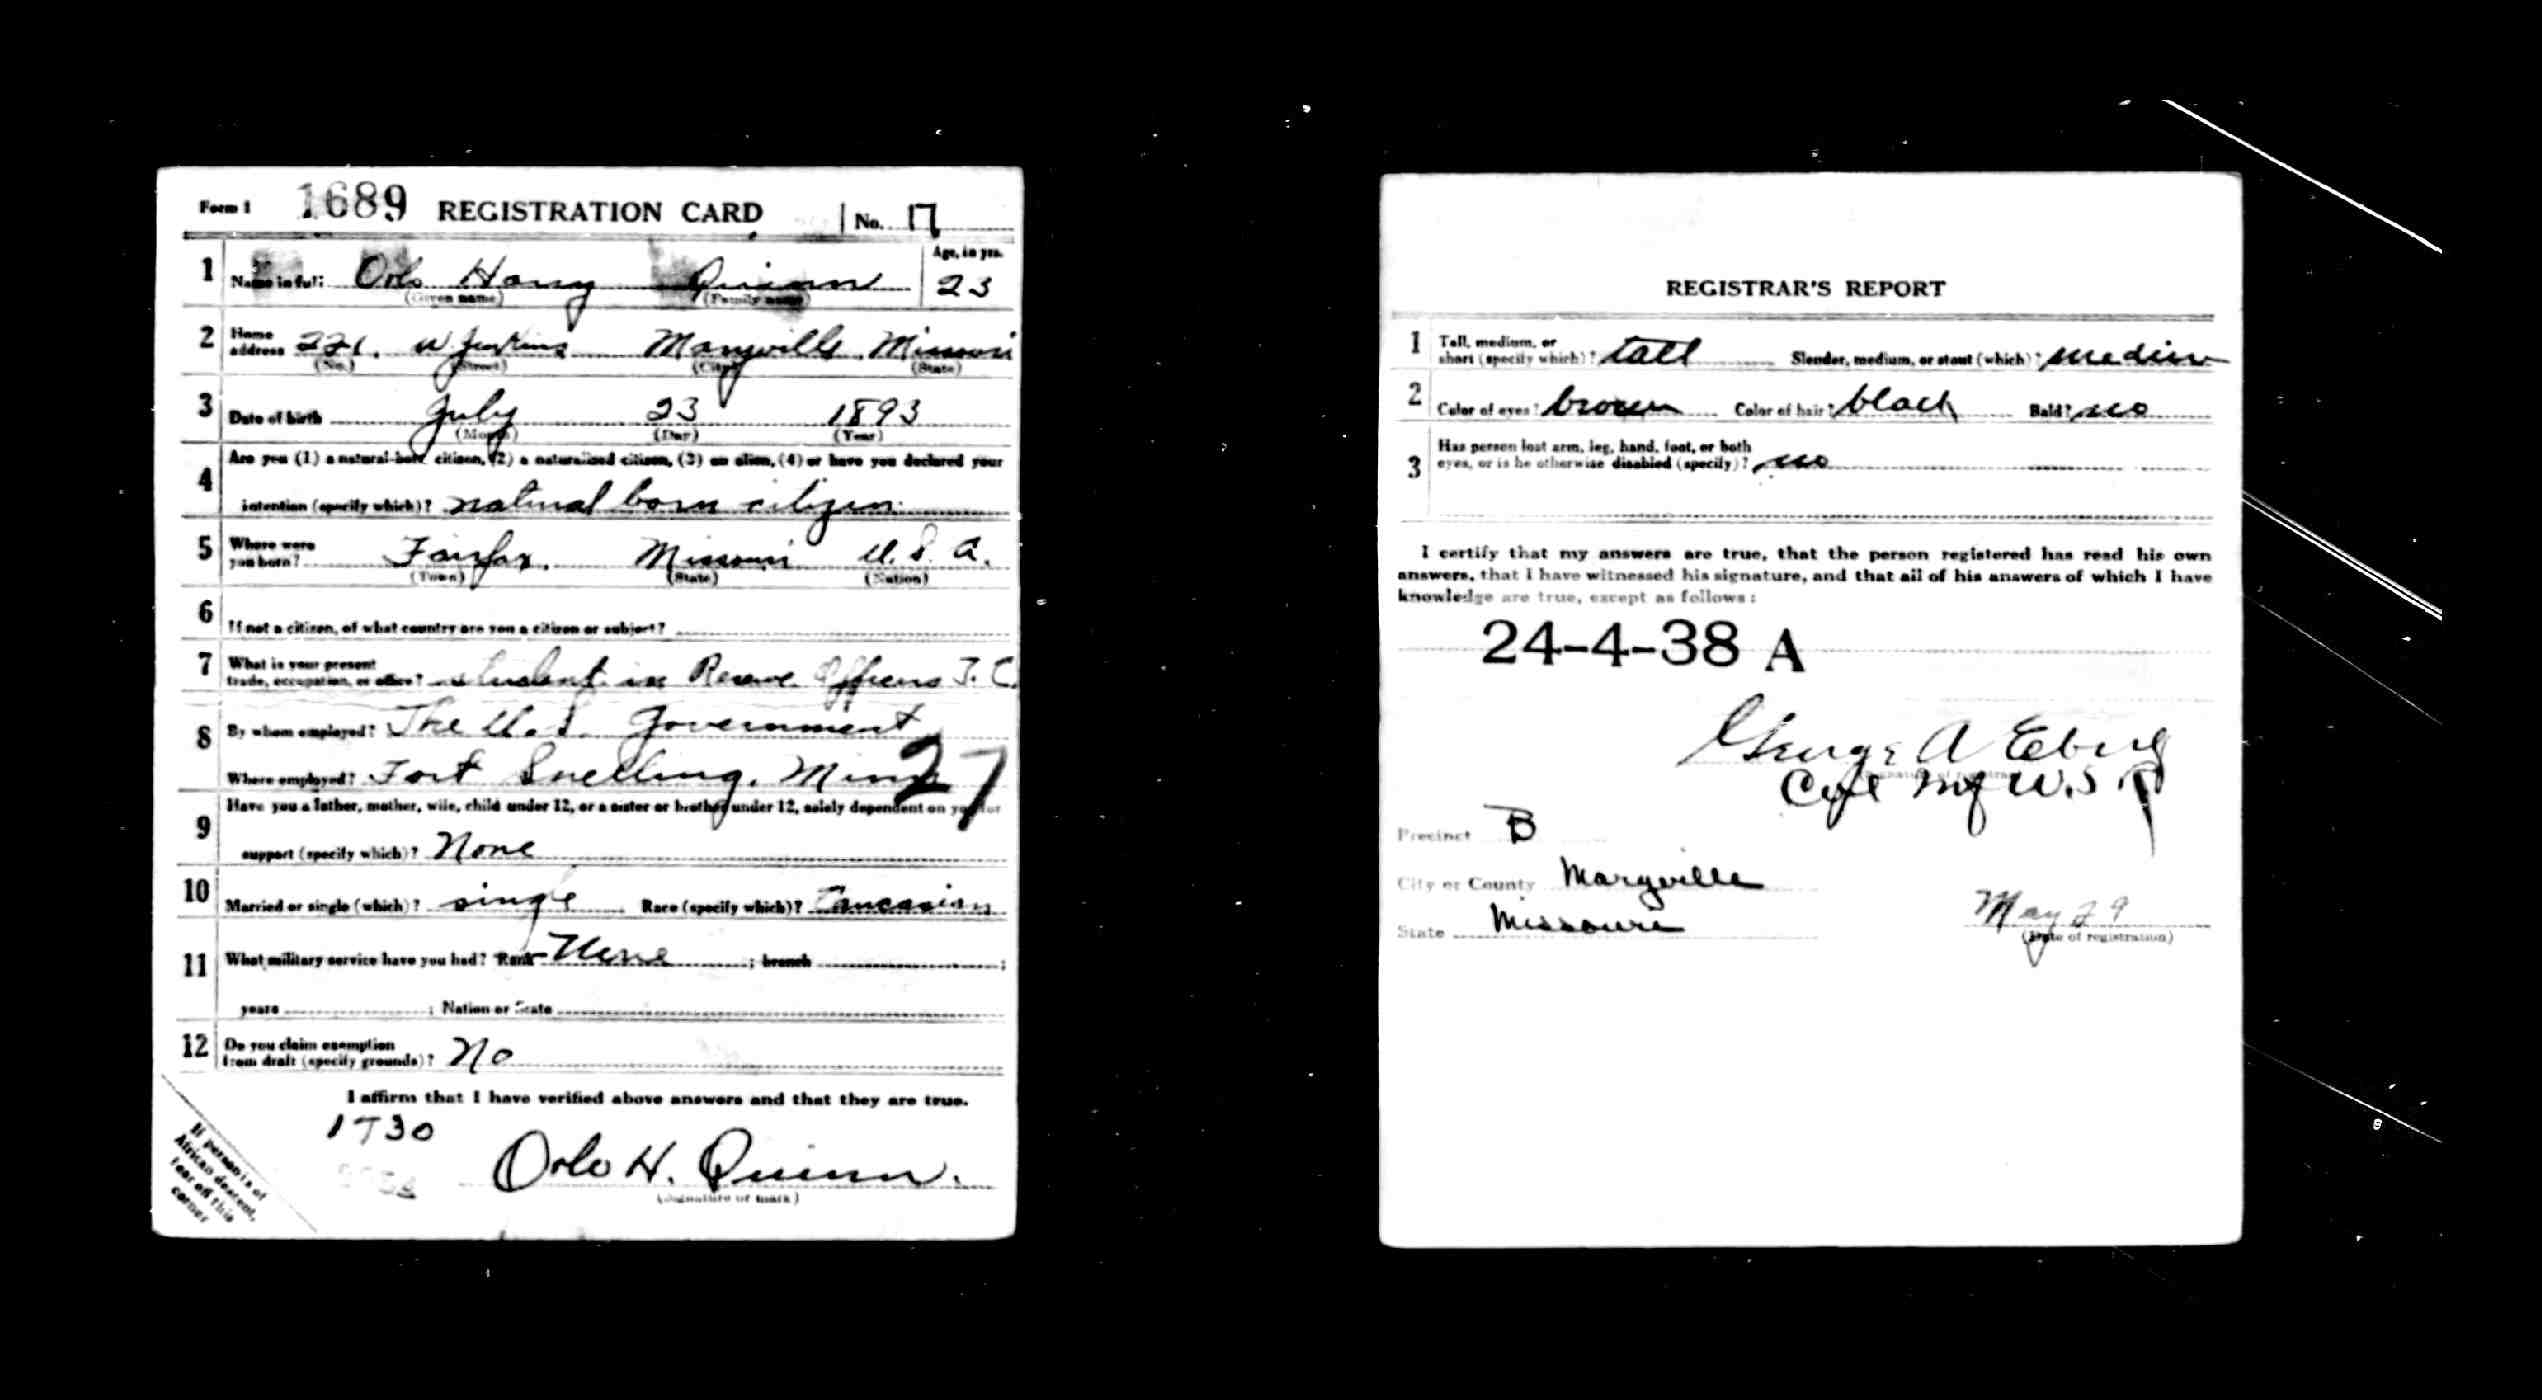 Form 1 1689 REGISTRATION CARD No. 17
1 Name in full Orlo Harry Quinn Age, in yrs. 23
(Given name) (Family name)
2 Home address 221. W Jenkins Maryville Missouri
(No.) (Street) (City) (State)
3 Date of birth July 23 1893
(Month) (Day) (Year)
4 Are you (1) a natural-born citizen, (2) a naturalized citizen, (3) an alien, (4) or have you declared your
intention (specify which)? natural born citizen
5 Where were you born? Fairfax. Missouri U. S. A.
(Town) (State) (Nation)
6 If not a citizen, of what country are you a citizen or subject?
7 What is your present trade, occupation, or office? student in Reserve Officers T. C.
8 By whom employed? The U. S. Government
Where employed? Fort Snelling, Minn 27
9 Have you a father, mother, wife, child under 12, or a sister or brother under 12, solely dependent on you for
support (specify which)? None
10 Married or single (which)? single Race (specify which)? Caucasian
11 What military service have you had? Rank None ; branch ;
years ; Nation or State
12 Do you claim exemption from draft (specify grounds)? No
I affirm that I have verified above answers and that they are true.
1730
Orlo H. Quinn.
(Signature or mark)
If person is of
African descent,
tear off this
corner
REGISTRAR'S REPORT
1 Tall, medium, or short (specify which)? tall Slender, medium, or stout (which)? medium
2 Color of eyes? brown Color of hair? black Bald? no
3 Has person lost arm, leg, hand, foot, or both
eyes, or is he otherwise disabled (specify)? no
I certify that my answers are true, that the person registered has read his own
answers, that I have witnessed his signature, and that all of his answers of which I have
knowledge are true, except as follows:
24-4-38 A
George A
(Signature of registrar)
Precinct B
City or County Maryville
State Missouri
May 29
(Date of registration)